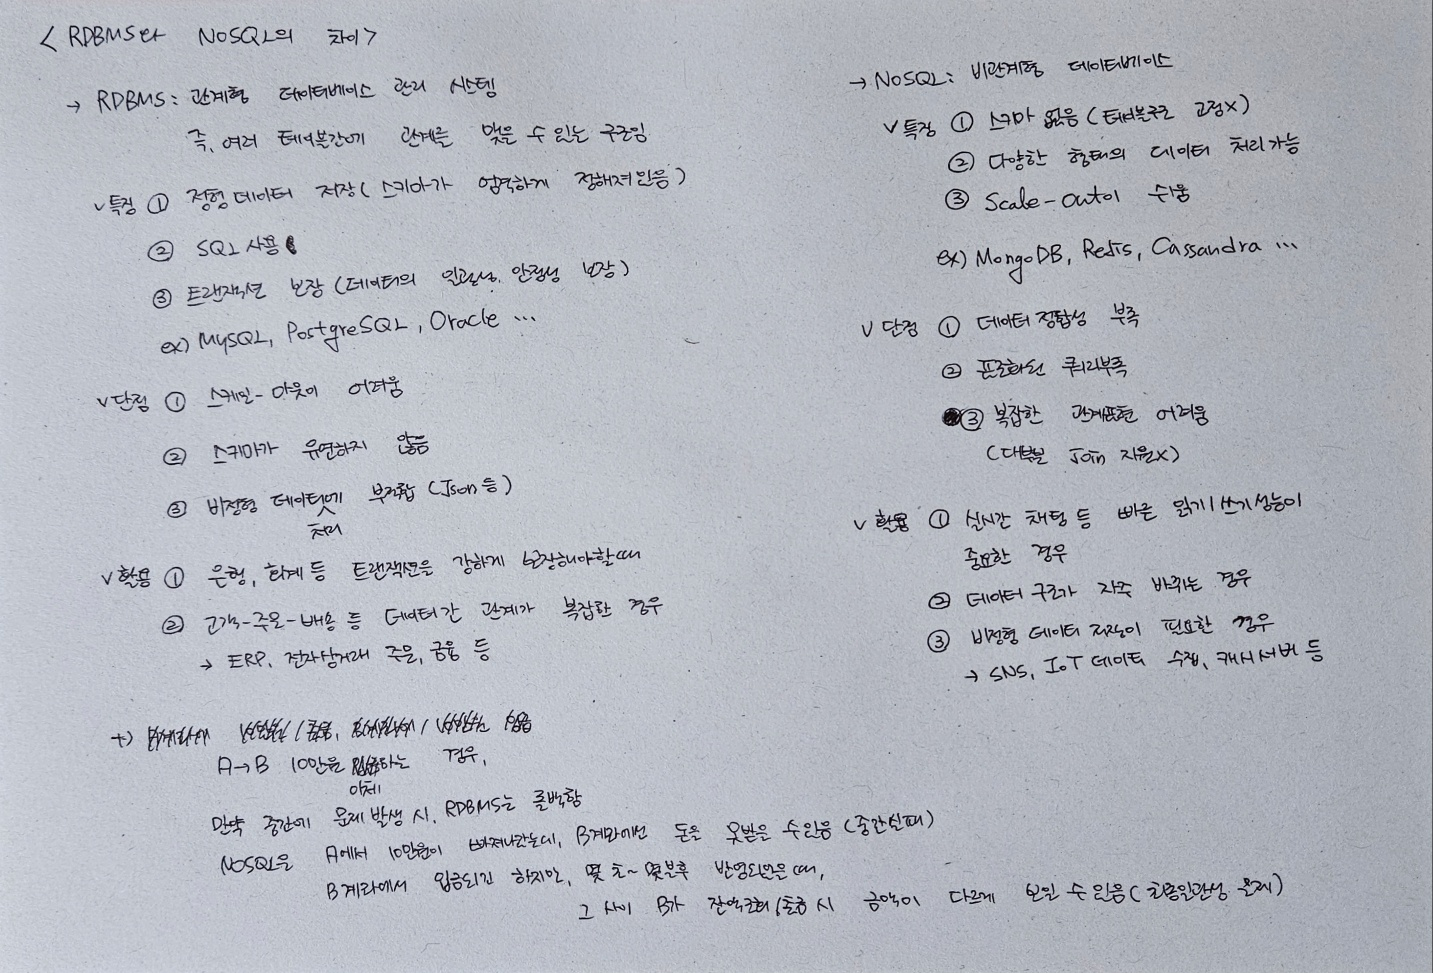 < RDBMS와 NoSQL의 차이>
→ RDBMS: 관계형 데이터베이스 관리 시스템
즉, 여러 테이블간에 관계를 맺을 수 있는 구조임
v 특징 ① 정형 데이터 저장 (스키마가 엄격하게 정해져있음)
② SQL 사용
③ 트랜잭션 보장 (데이터의 일관성, 안정성 보장)
ex) MySQL, PostgreSQL, Oracle ...
v 단점 ① 스케일-아웃이 어려움
② 스키마가 유연하지 않음
③ 비정형 데이터에 부적합 (Json 등)
처리
v 활용 ① 은행, 회계 등 트랜잭션을 강하게 보장해야할 때
② 고객-주문-배송 등 데이터간 관계가 복잡한 경우
→ ERP, 전자상거래 주문, 금융 등
→ NoSQL: 비관계형 데이터베이스
v 특징 ① 스키마 없음 (테이블구조 고정x)
② 다양한 형태의 데이터 처리 가능
③ Scale-out이 쉬움
ex) MongoDB, Redis, Cassandra ...
v 단점 ① 데이터 정합성 부족
② 표준화된 쿼리부족
③ 복잡한 관계표현 어려움
(대부분 Join 지원x)
v 활용 ① 실시간 채팅 등 빠른 읽기/쓰기 성능이
중요한 경우
② 데이터 구조가 자주 바뀌는 경우
③ 비정형 데이터 저장이 필요한 경우
→ SNS, IoT 데이터 수집, 캐시서버 등
+)
A→B 10만원 하는 경우,
이체
만약 중간에 문제 발생 시, RDBMS는 롤백함
NoSQL은 A에서 10만원이 빠져나갔는데, B계좌에선 돈을 못받을 수 있음 (중간실패)
B계좌에서 입금되긴 하지만, 몇 초~몇분후 반영되었을 때,
그 사이 B가 잔액조회/출금 시 금액이 다르게 보일 수 있음 (최종일관성 문제)